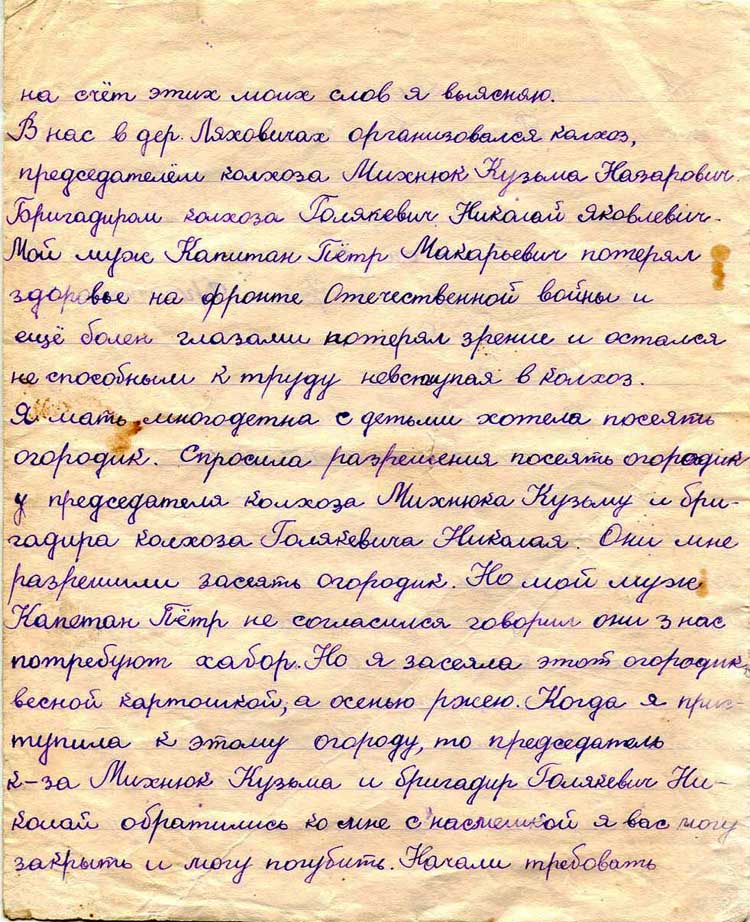 на счёт этих моих слов я выясняю.
В нас в дер. Ляховичах организовался колхоз,
председателём колхоза Михнюк Кузьма Назарович.
Бригадиром колхоза Голякевич Николай Яковлевич.
Мой муж Капитан Пётр Макарьевич потерял
здоровье на фронте Отечественной войны и
ещё болен глазами потерял зрение и остался
не способным к труду невступая в колхоз.
Я мать многодетна с детьми хотела посеять
огородик. Спросила разрешения посеять огородик
у председателя колхоза Михнюка Кузьму и бри-
гадира колхоза Голякевича Николая. Они мне
разрешили засеять огородик. Но мой муж
Капетан Пётр не согласился говорил они з нас
потребуют хабор. Но я засеяла этот огородик
весной картошкой, а осенью ржею. Когда я прис-
тупила к этому огороду, то председатель
к-за Михнюк Кузьма и бригадир Голякевич Ни-
колай обратились ко мне с насмешкой я вас могу
закрыть и могу погубить. Начали требовать